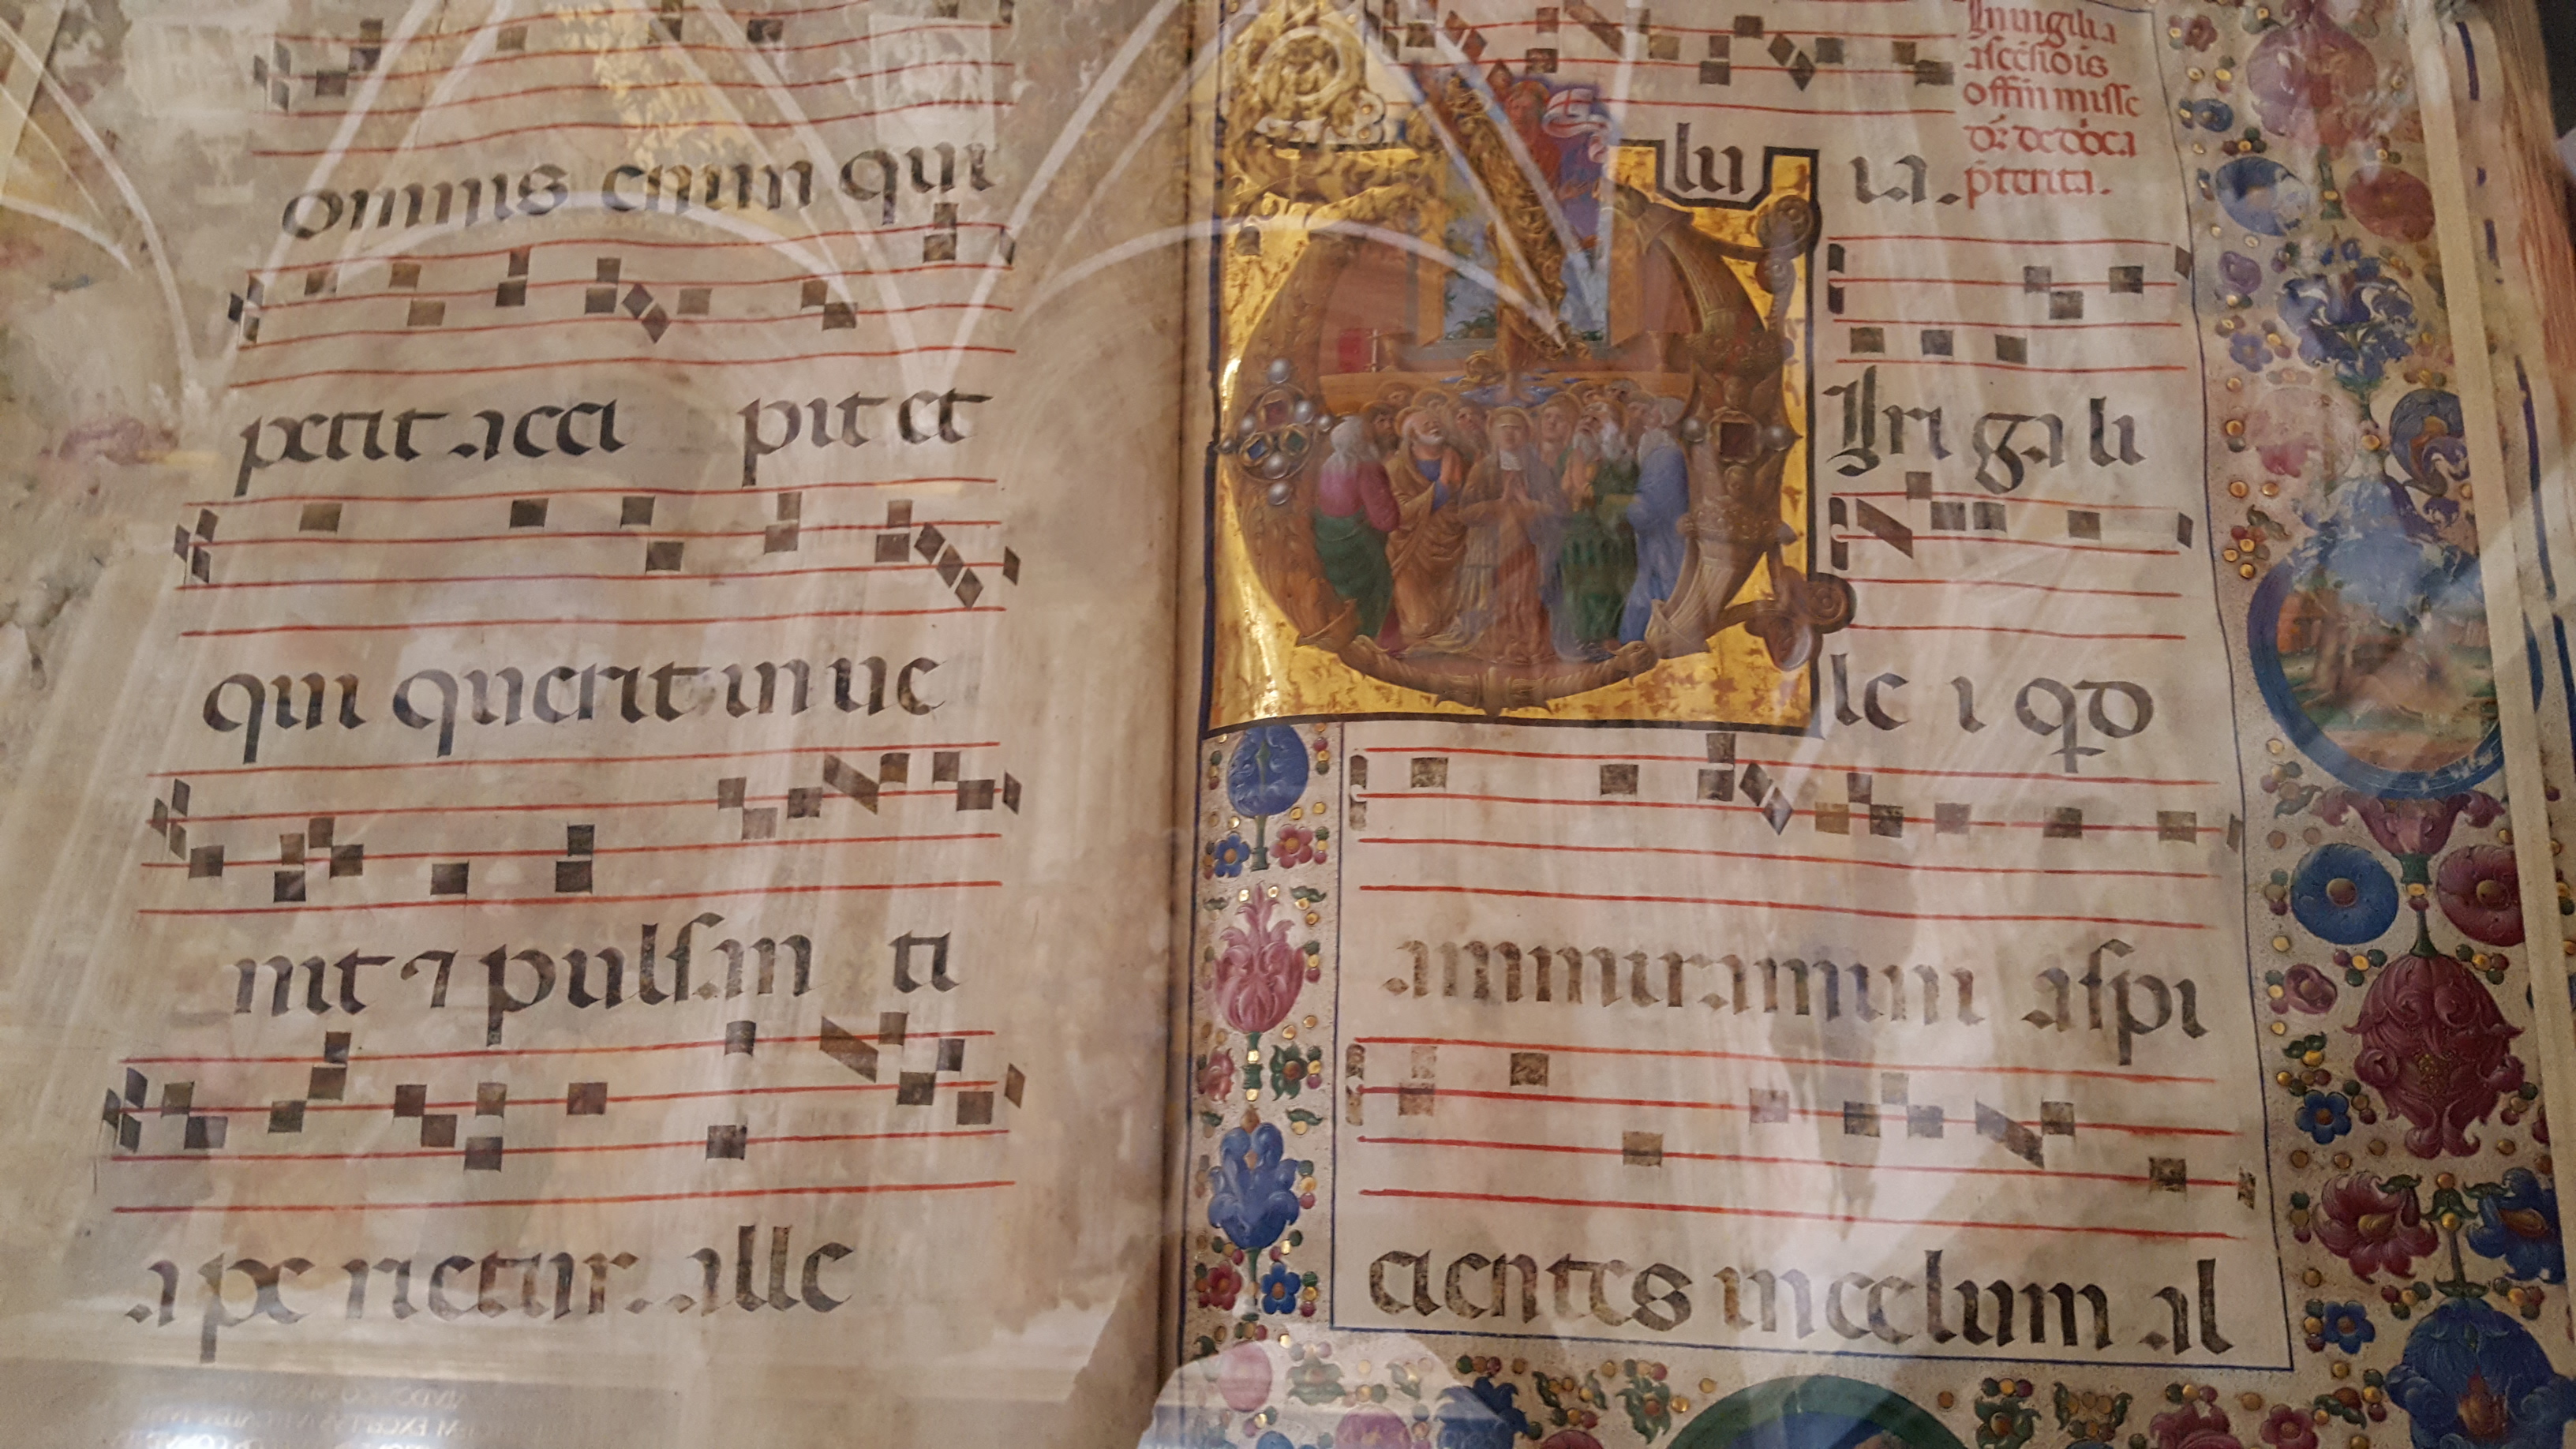 omnis enim qui
petit acci pit et
qui querit inue
nit ⁊ pulsan ti
ape rietur. alle
lu ia.
In uigilia
ascēsiōis
offm̄ misse
dr̄ de dōca
p̄terita.
Uiri gali
le i qd
ammiramini aspi
cientes in celum al